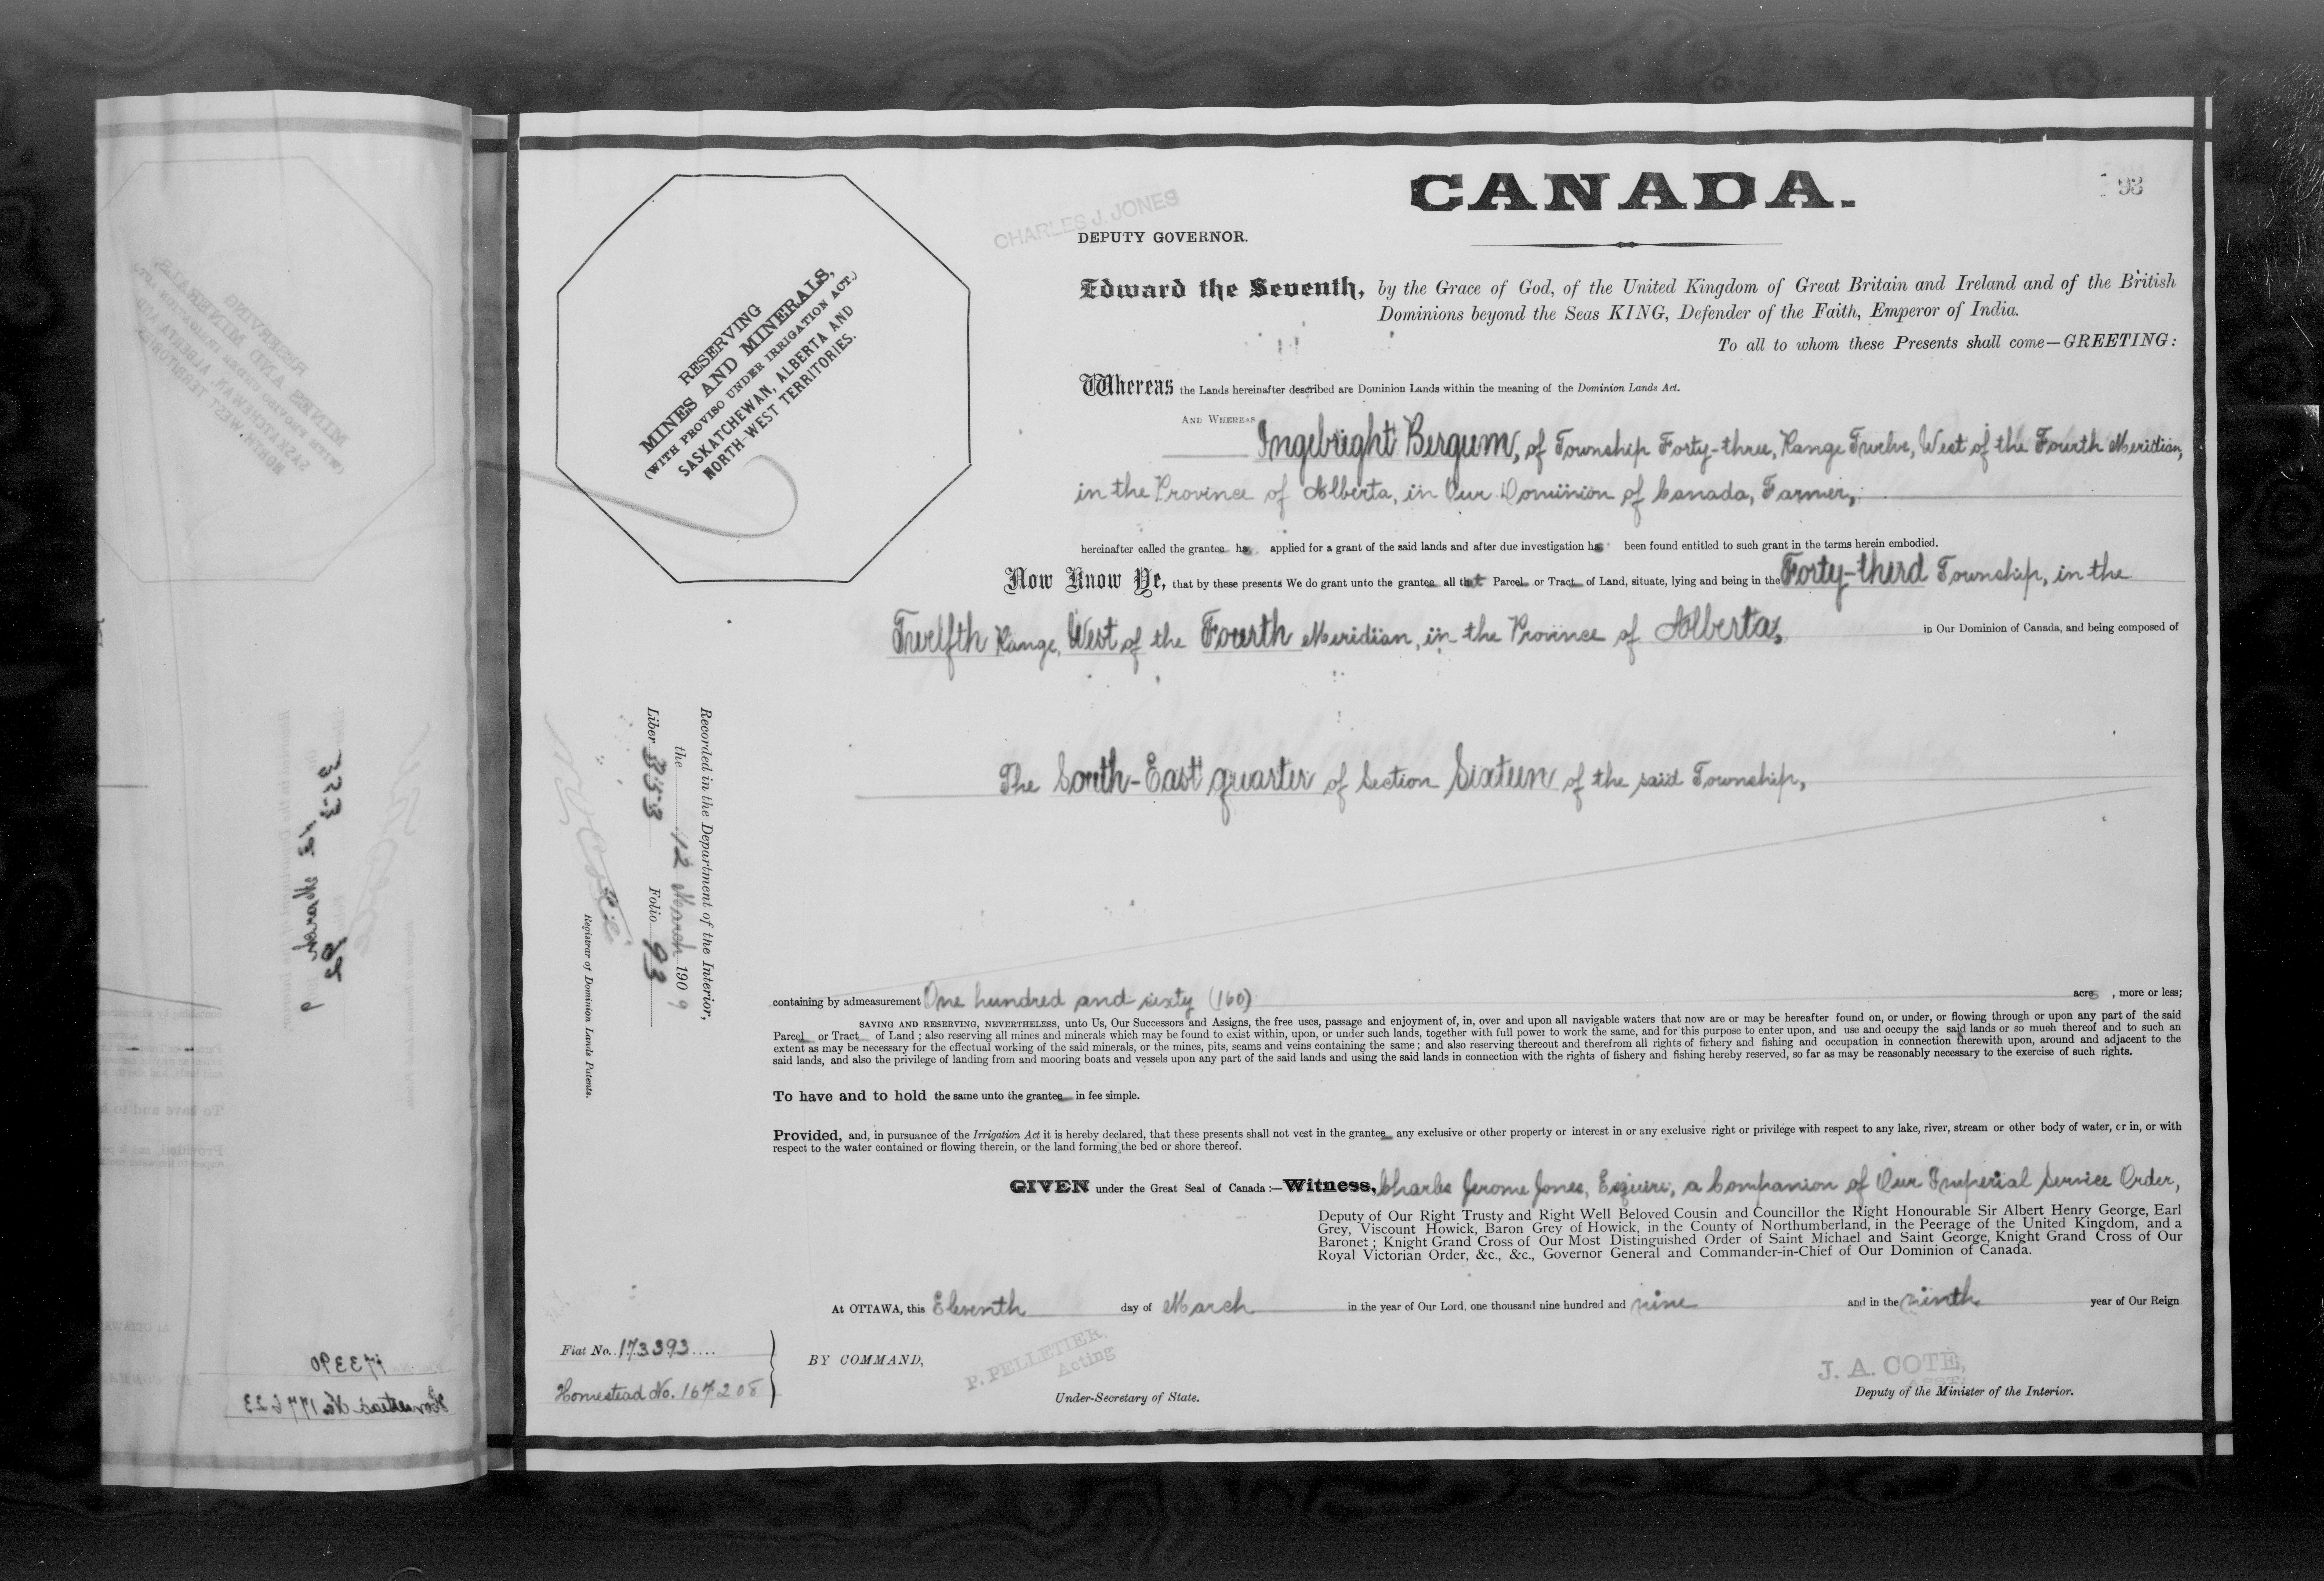 CANADA.
93
CHARLES J. JONES
DEPUTY GOVERNOR.
RESERVING
MINES AND MINERALS,
(WITH PROVISO UNDER IRRIGATION ACT.)
SASKATCHEWAN, ALBERTA AND
NORTH-WEST TERRITORIES.
Edward the Seventh, by the Grace of God, of the United Kingdom of Great Britain and Ireland and of the British
Dominions beyond the Seas KING, Defender of the Faith, Emperor of India.
To all to whom these Presents shall come—GREETING:
Whereas the Lands hereinafter described are Dominion Lands within the meaning of the Dominion Lands Act.
AND WHEREAS Ingebright Bergum, of Township Forty-three, Range Twelve, West of the Fourth Meridian,
in the Province of Alberta, in Our Dominion of Canada, Farmer,
hereinafter called the grantee has applied for a grant of the said lands and after due investigation has been found entitled to such grant in the terms herein embodied.
Now Know Ye, that by these presents We do grant unto the grantee all that Parcel or Tract of Land, situate, lying and being in the Forty-third Township, in the
Twelfth Range, West of the Fourth Meridian, in the Province of Alberta, in Our Dominion of Canada, and being composed of
The South-East quarter of Section Sixteen of the said Township,
Recorded in the Department of the Interior,
the 12 March 1909
Liber 353 Folio 93
Registrar of Dominion Lands Patents.
containing by admeasurement One hundred and sixty (160) acres, more or less;
SAVING AND RESERVING, NEVERTHELESS, unto Us, Our Successors and Assigns, the free uses, passage and enjoyment of, in, over and upon all navigable waters that now are or may be hereafter found on, or under, or flowing through or upon any part of the said
Parcel or Tract of Land; also reserving all mines and minerals which may be found to exist within, upon, or under such lands, together with full power to work the same, and for this purpose to enter upon, and use and occupy the said lands or so much thereof and to such an
extent as may be necessary for the effectual working of the said minerals, or the mines, pits, seams and veins containing the same; and also reserving thereout and therefrom all rights of fishery and fishing and occupation in connection therewith upon, around and adjacent to the
said lands, and also the privilege of landing from and mooring boats and vessels upon any part of the said lands and using the said lands in connection with the rights of fishery and fishing hereby reserved, so far as may be reasonably necessary to the exercise of such rights.
To have and to hold the same unto the grantee in fee simple.
Provided, and, in pursuance of the Irrigation Act it is hereby declared, that these presents shall not vest in the grantee any exclusive or other property or interest in or any exclusive right or privilege with respect to any lake, river, stream or other body of water, or in, or with
respect to the water contained or flowing therein, or the land forming the bed or shore thereof.
GIVEN under the Great Seal of Canada:—Witness, Charles Jerome Jones, Esquire, a Companion of Our Imperial Service Order,
Deputy of Our Right Trusty and Right Well Beloved Cousin and Councillor the Right Honourable Sir Albert Henry George, Earl
Grey, Viscount Howick, Baron Grey of Howick, in the County of Northumberland, in the Peerage of the United Kingdom, and a
Baronet; Knight Grand Cross of Our Most Distinguished Order of Saint Michael and Saint George, Knight Grand Cross of Our
Royal Victorian Order, &c., &c., Governor General and Commander-in-Chief of Our Dominion of Canada.
At OTTAWA, this Eleventh day of March in the year of Our Lord, one thousand nine hundred and nine and in the ninth year of Our Reign
Fiat No. 173393
Homestead No. 167208
BY COMMAND,
P. PELLETIER,
Acting
Under-Secretary of State.
J. A. COTÉ,
ASST.
Deputy of the Minister of the Interior.
173390
Homestead No. 177623